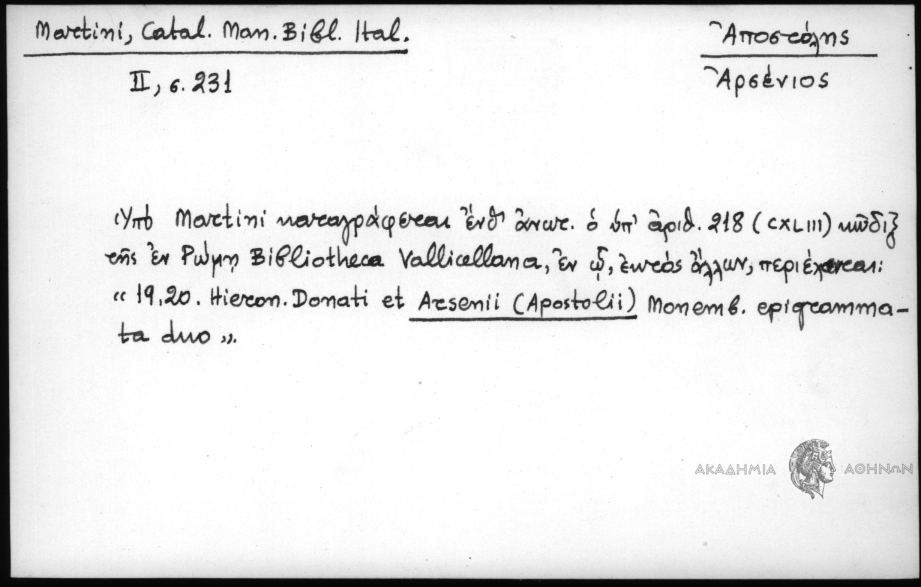 Martini, Catal. Man. Bibl. Ital.
II, σ. 231
Ἀποστόλης
Ἀρσένιος
Ὑπὸ Martini καταγράφεται ἔνθ' ἀνωτ. ὁ ὑπ' ἀριθ. 218 (CXLIII) κῶδιξ
τῆς ἐν Ρώμῃ Bibliotheca Vallicellana, ἐν ᾧ, ἐκτὸς ἄλλων, περιέχεται:
« 19,20. Hieron. Donati et Arsenii (Apostolii) Monemb. epigramma-
ta duo ».
ΑΚΑΔΗΜΙΑ ΑΘΗΝΩΝ